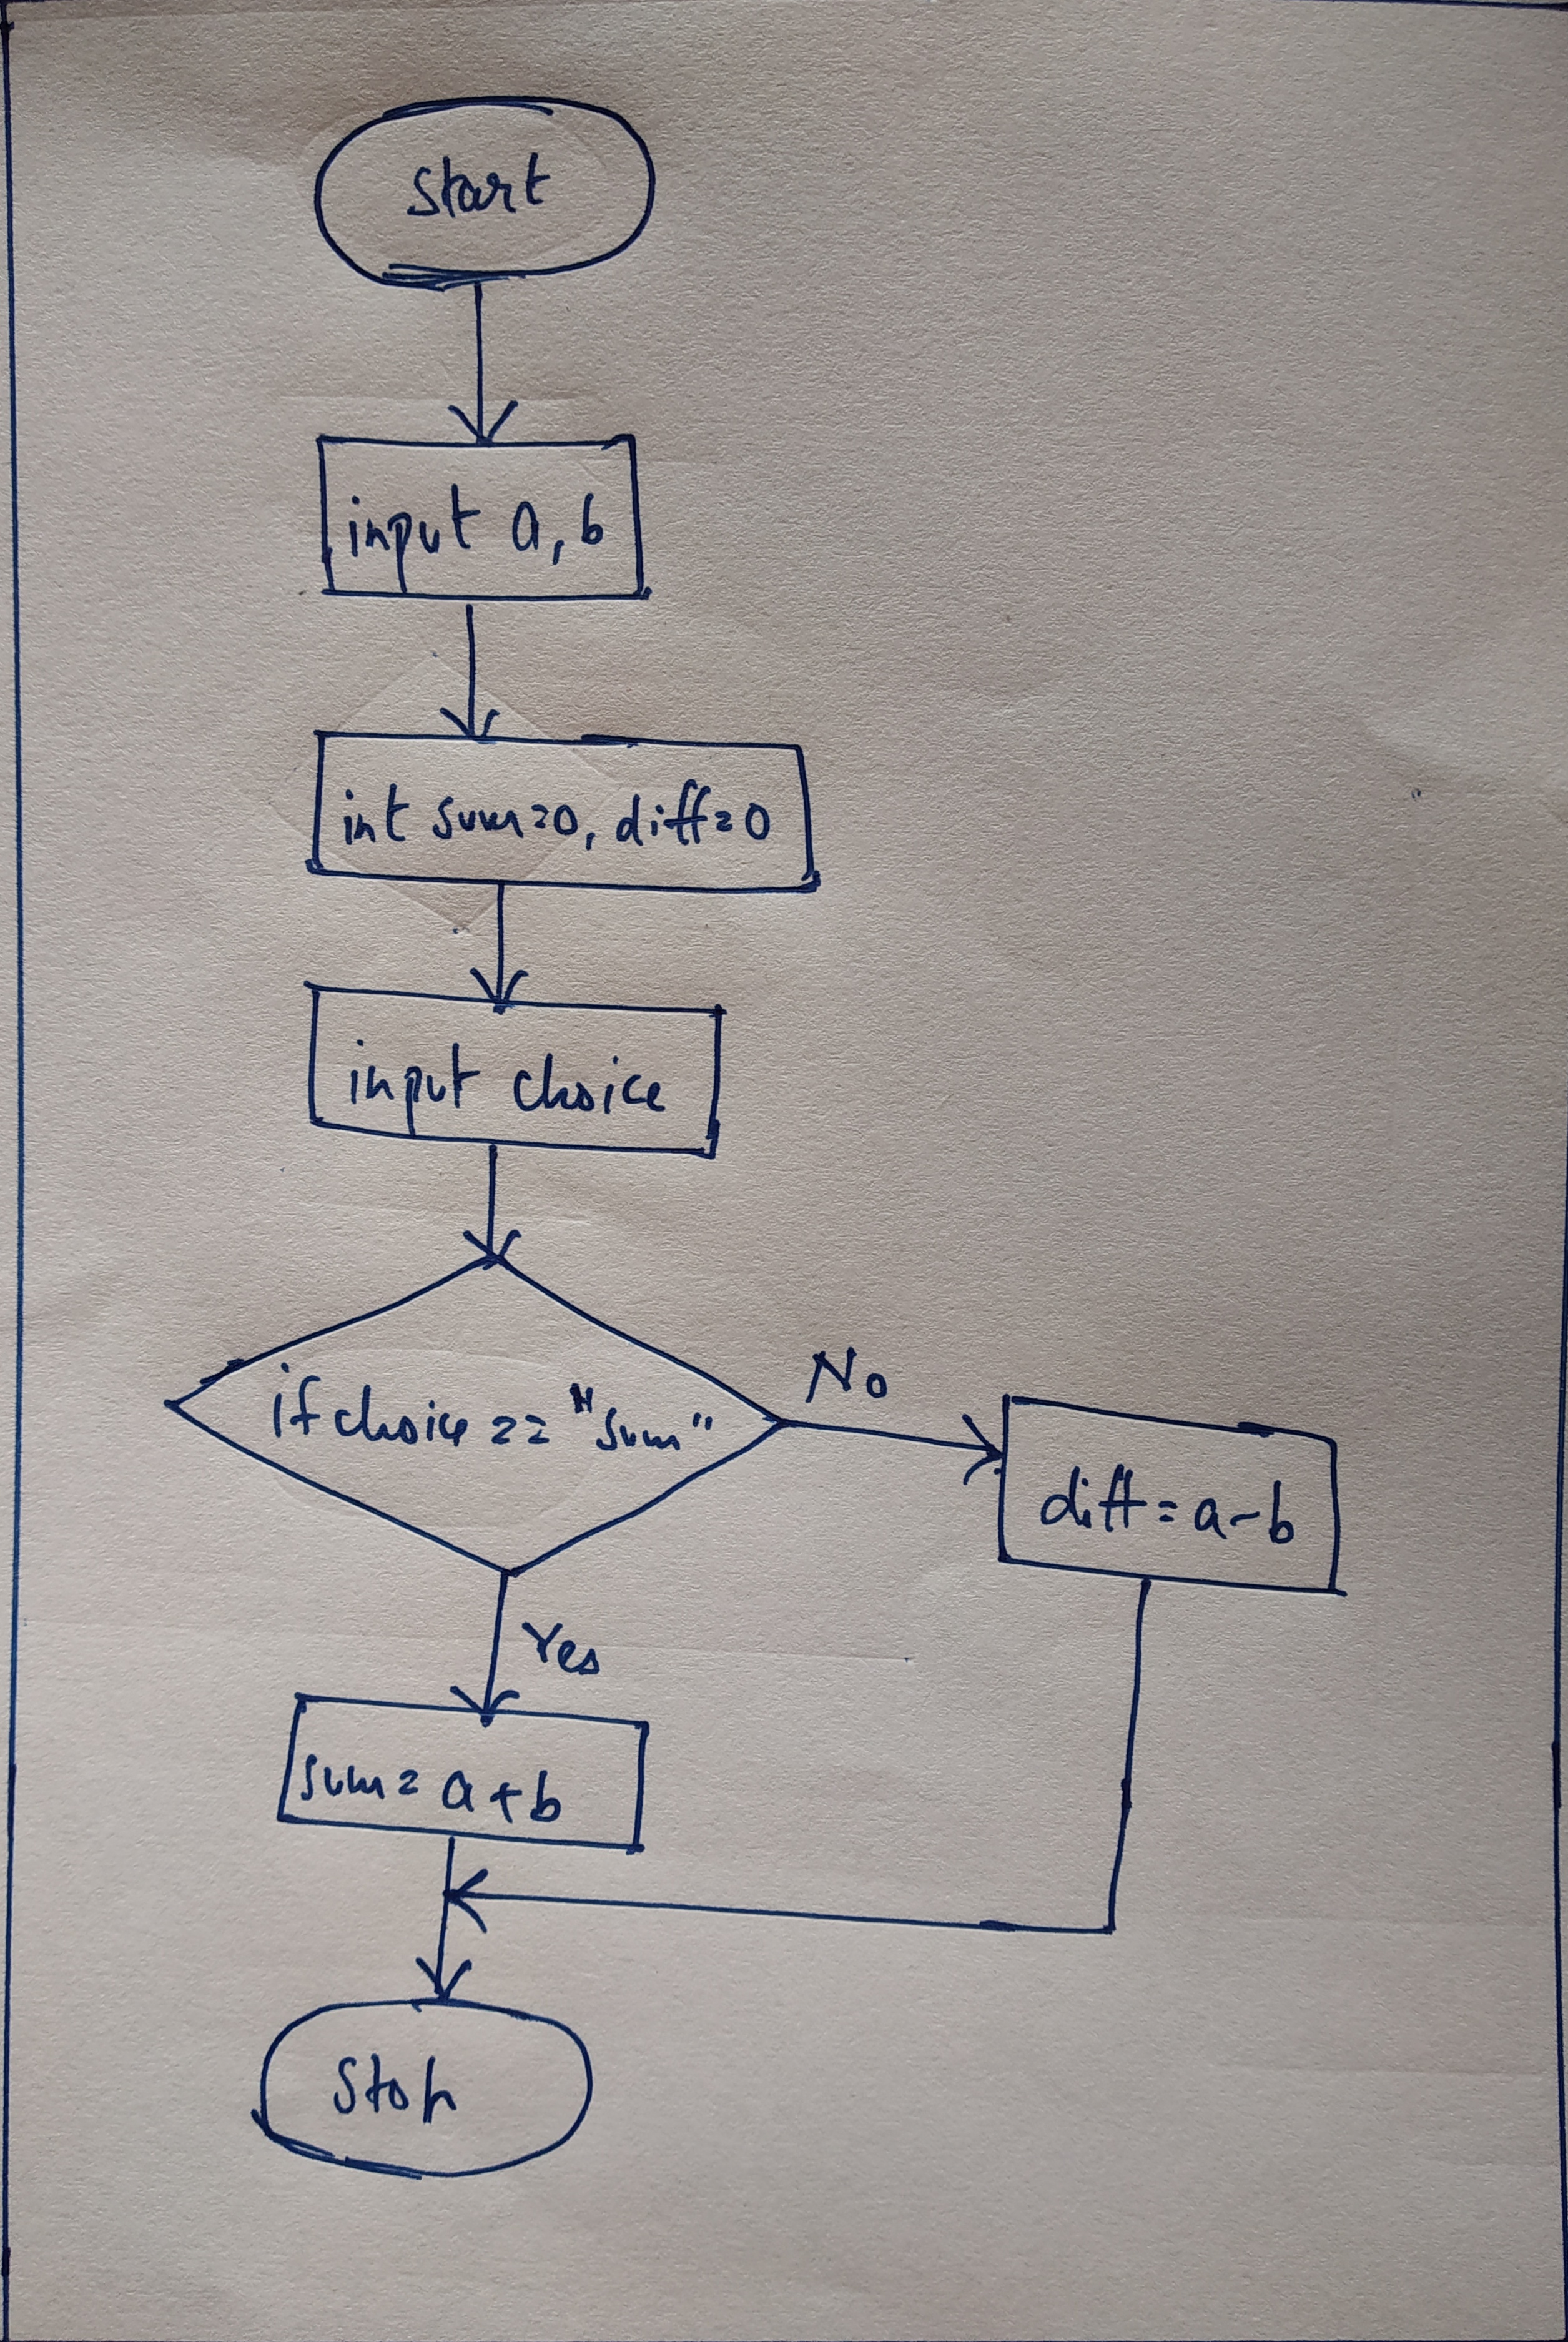 Start
input a, b
int sum=0, diff=0
input choice
if choice == "sum"
No
diff = a-b
Yes
sum = a+b
Stop